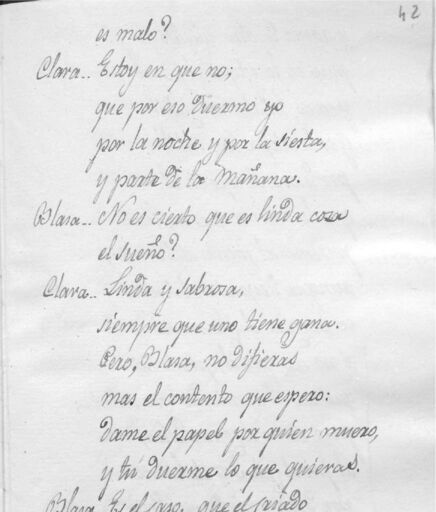 42
es malo?
Clara.. Estoy en que no;
que por eso duermo yo
por la noche y por la siesta,
y parte de la mañana.
Blasa.. No es cierto que es linda cosa
el sueño?
Clara.. Linda y sabrosa,
siempre que uno tiene gana.
Pero, Blasa, no difieras
mas el contento que espero:
dame el papel por quien muero,
y tú duerme lo que quieras.
Blasa. Es el caso, que el criado